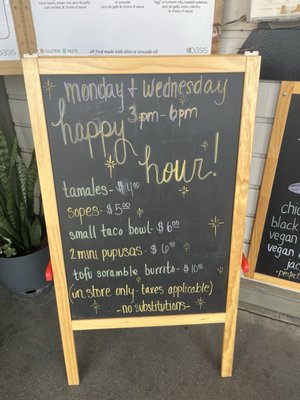 monday + Wednesday
3pm - 6pm
happy
hour!
tamales - $4⁰⁰
sopes - $5⁰⁰
small taco bowl - $6⁰⁰
2 mini pupusas $6⁰⁰
tofu scramble burrito - $10⁰⁰
(in store only - taxes applicable)
- no substitutions -
OASIS
GLUTEN
NUTS
all food made with olive or avocado oil
OASIS
& choice of sauce
& choice of sauce
chic
black
vegan
vegan